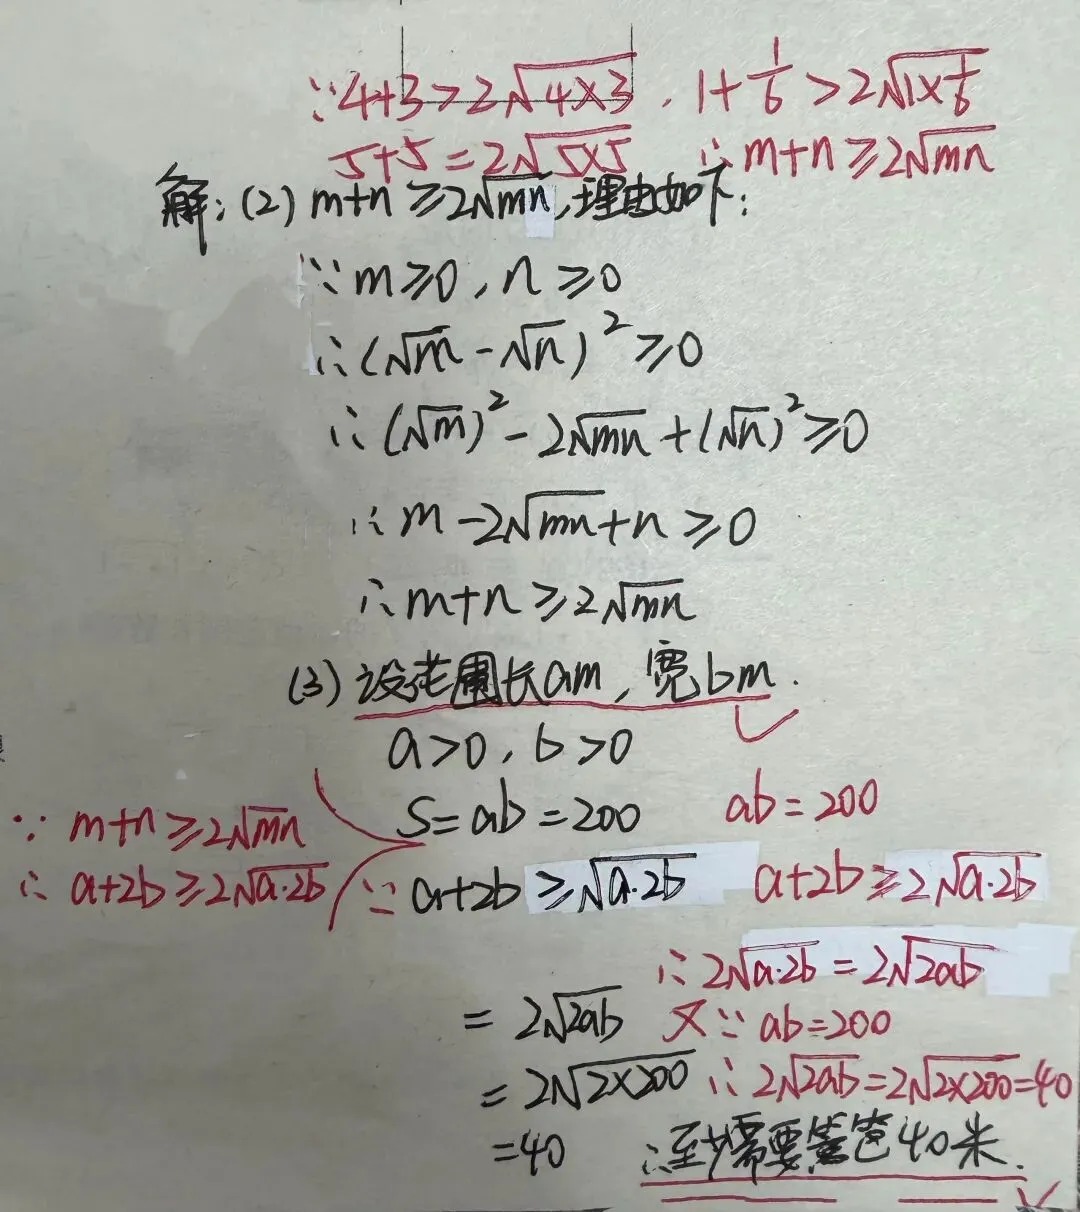 ∵4+3>2√(4×3), 1+1/6>2√(1×1/6)
5+5=2√(5×5) ∴m+n≥2√(mn)
解:(2)m+n≥2√(mn),理由如下:
∵m≥0,n≥0
∴(√m-√n)²≥0
∴(√m)²-2√(mn)+(√n)²≥0
∴m-2√(mn)+n≥0
∴m+n≥2√(mn)
(3)设花圃长am,宽bm.
a>0,b>0
∵ m+n≥2√(mn)
S=ab=200 ab=200
∴ a+2b≥2√(a·2b)
∵ a+2b≥√(a·2b) a+2b≥2√(a·2b)
∴2√(a·2b)=2√(2ab)
=2√(2ab) 又∵ab=200
=2√(2×200) ∴2√(2ab)=2√(2×200)=40
=40 ∴至少需要篱笆40米.